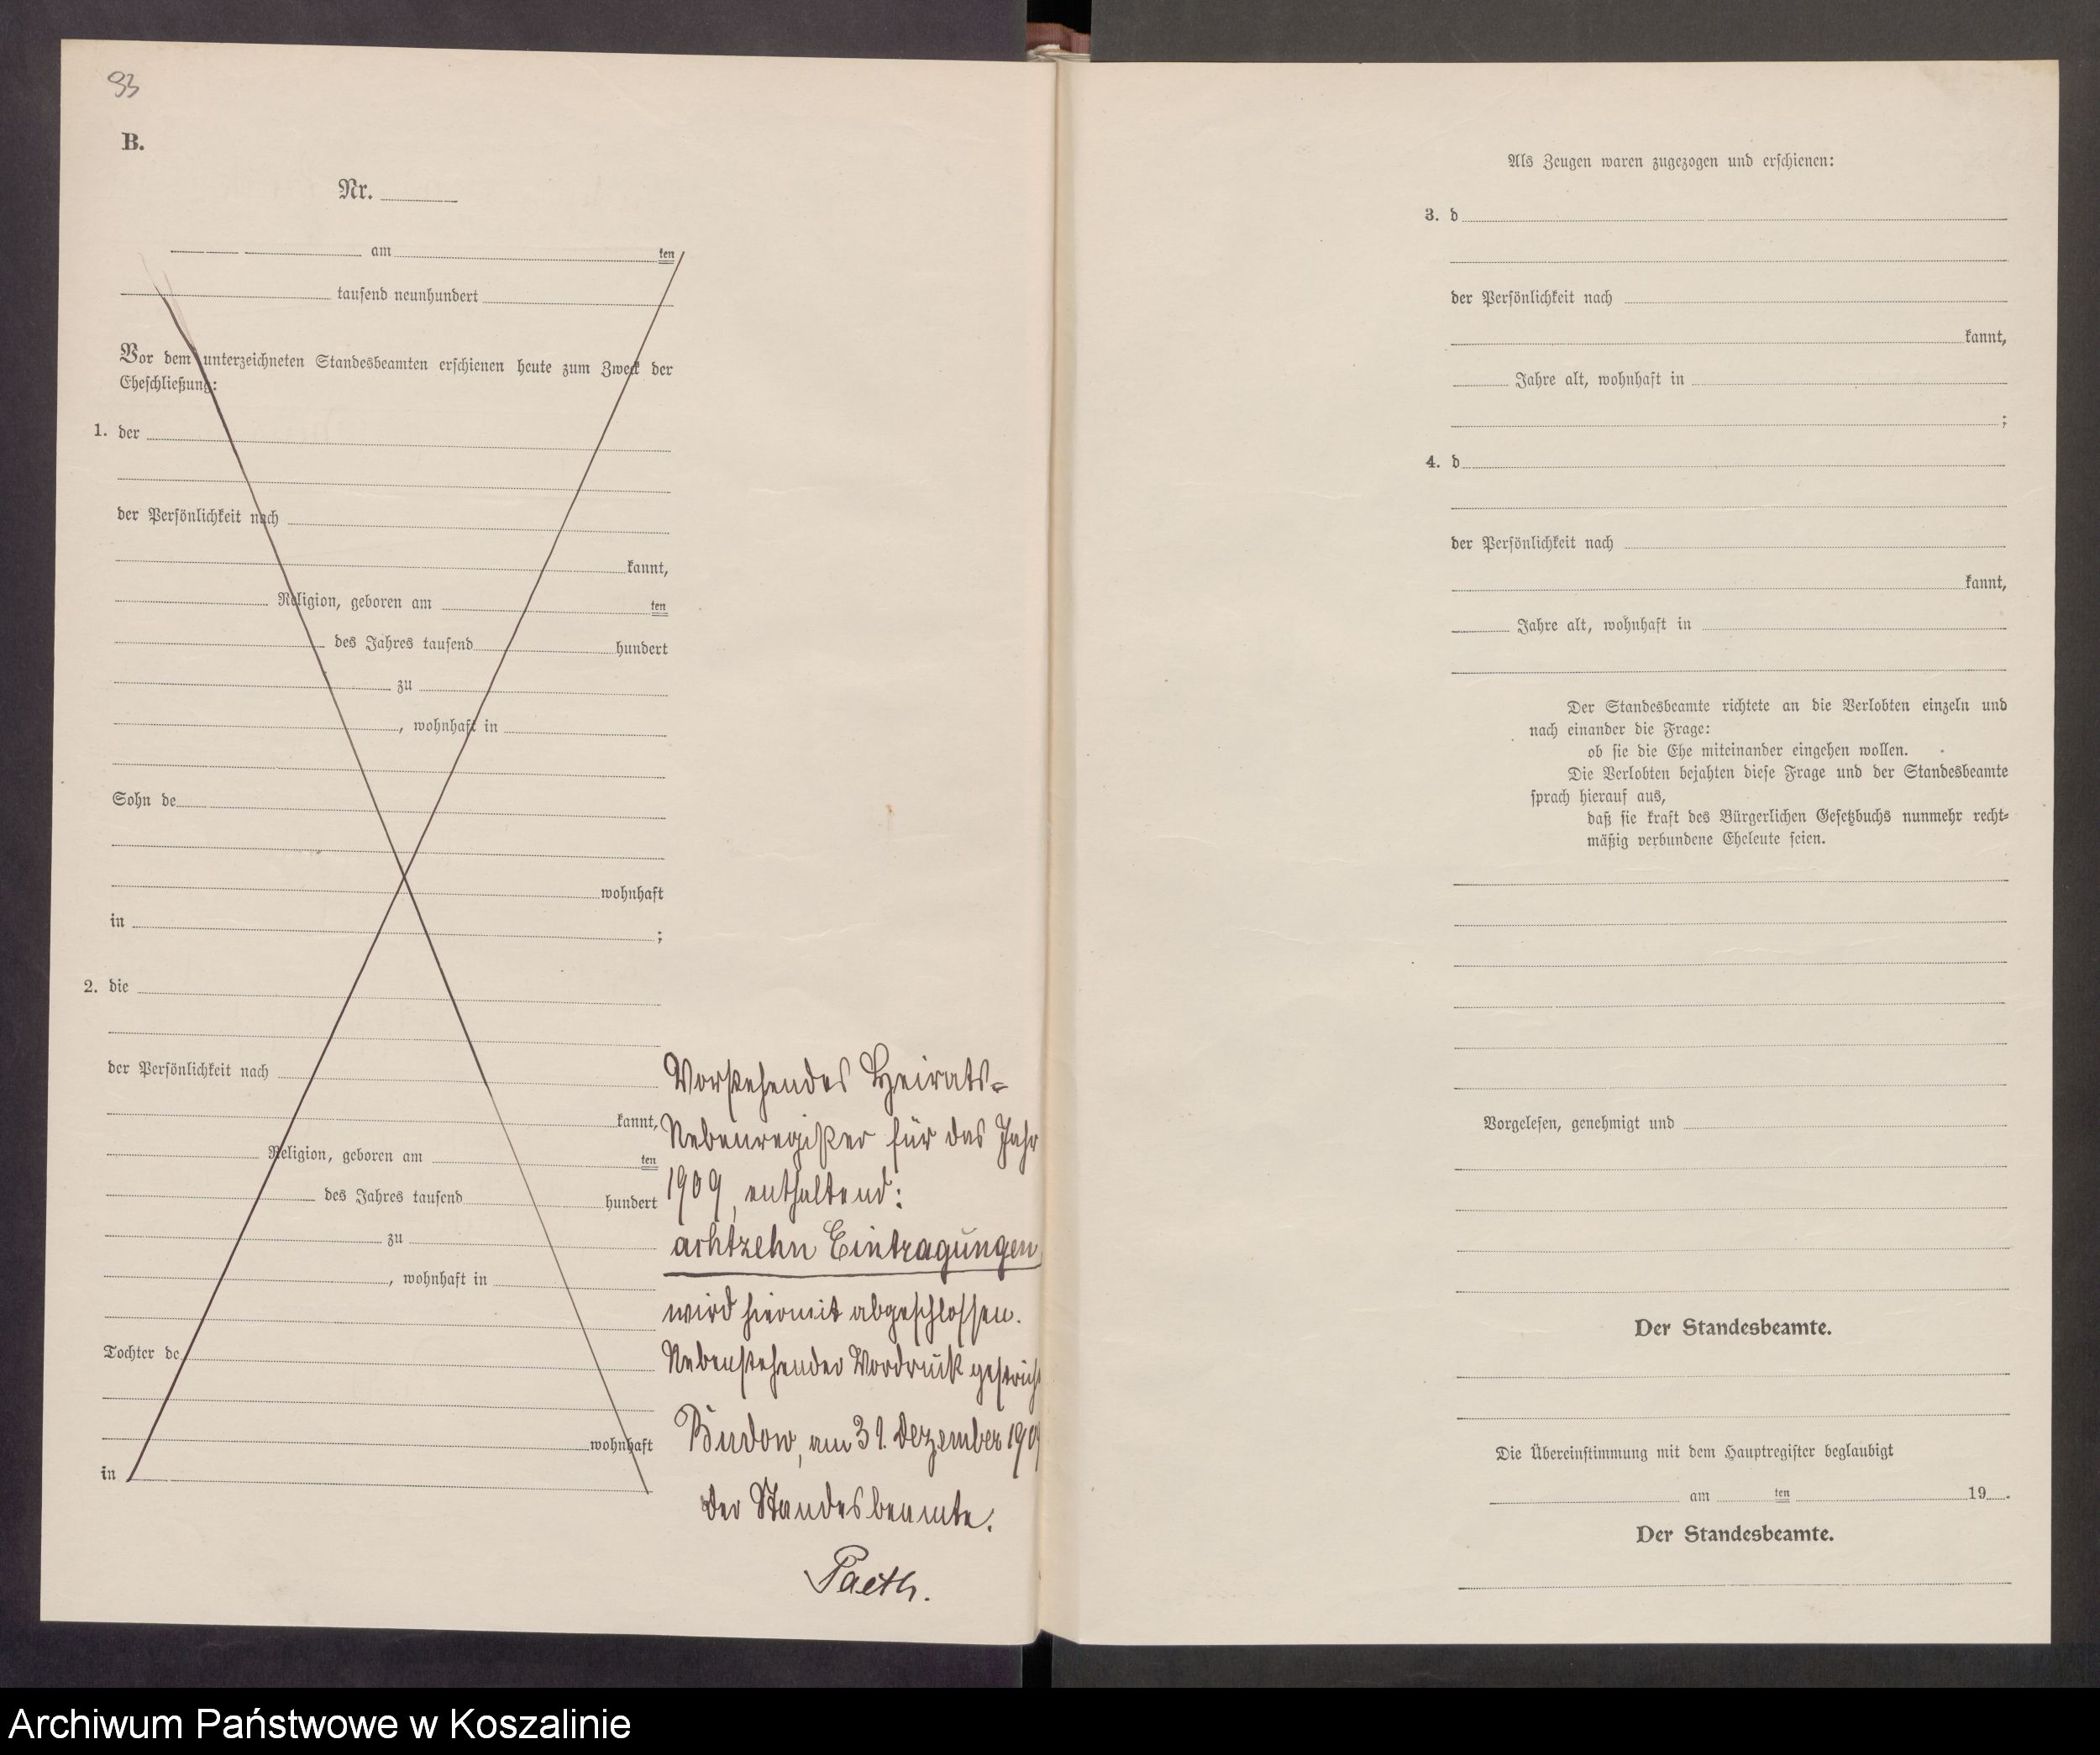 93
B.
Nr.
am ten
tausend neunhundert
Vor dem unterzeichneten Standesbeamten erschienen heute zum Zweck der
Eheschließung:
1. der
der Persönlichkeit nach
kannt,
Religion, geboren am ten
des Jahres tausend hundert
zu
, wohnhaft in
Sohn de
wohnhaft
in ;
2. die
der Persönlichkeit nach
kannt,
Religion, geboren am ten
des Jahres tausend hundert
zu
, wohnhaft in
Tochter de
wohnhaft
in
Vorstehendes Heirats-
Nebenregister für das Jahr
1909, enthaltend:
achtzehn Eintragungen
wird hiermit abgeschlossen.
Nebenstehender Vordruck gestrich
Budow, am 31. Dezember 1909
Der Standesbeamte.
Paeth.
Als Zeugen waren zugezogen und erschienen:
3. d
der Persönlichkeit nach
kannt,
Jahre alt, wohnhaft in
;
4. d
der Persönlichkeit nach
kannt,
Jahre alt, wohnhaft in
Der Standesbeamte richtete an die Verlobten einzeln und
nach einander die Frage:
ob sie die Ehe miteinander eingehen wollen.
Die Verlobten bejahten diese Frage und der Standesbeamte
sprach hierauf aus,
daß sie kraft des Bürgerlichen Gesetzbuchs nunmehr recht-
mäßig verbundene Eheleute seien.
Vorgelesen, genehmigt und
Der Standesbeamte.
Die Übereinstimmung mit dem Hauptregister beglaubigt
am ten 19 .
Der Standesbeamte.
Archiwum Państwowe w Koszalinie